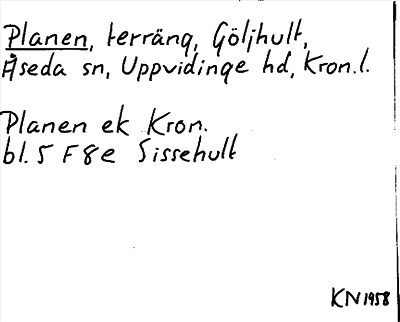 Planen, terräng, Göljhult,
Åseda sn, Uppvidinge hd, Kron.l.
Planen ek Kron.
bl. 5 F 8 e Sissehult
KN 1958